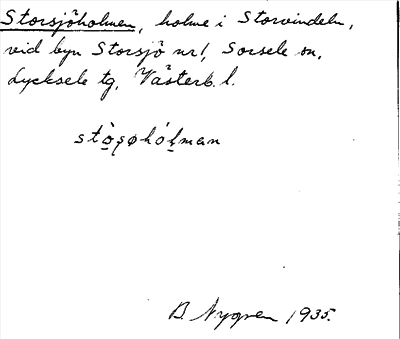 Storsjöholmen, holme i Storvindeln,
vid byn Storsjö nr 1, Sorsele sn,
Lycksele tg, Västerb. l.
stò̱şøhó̱ḷman
B. Nygren 1935.